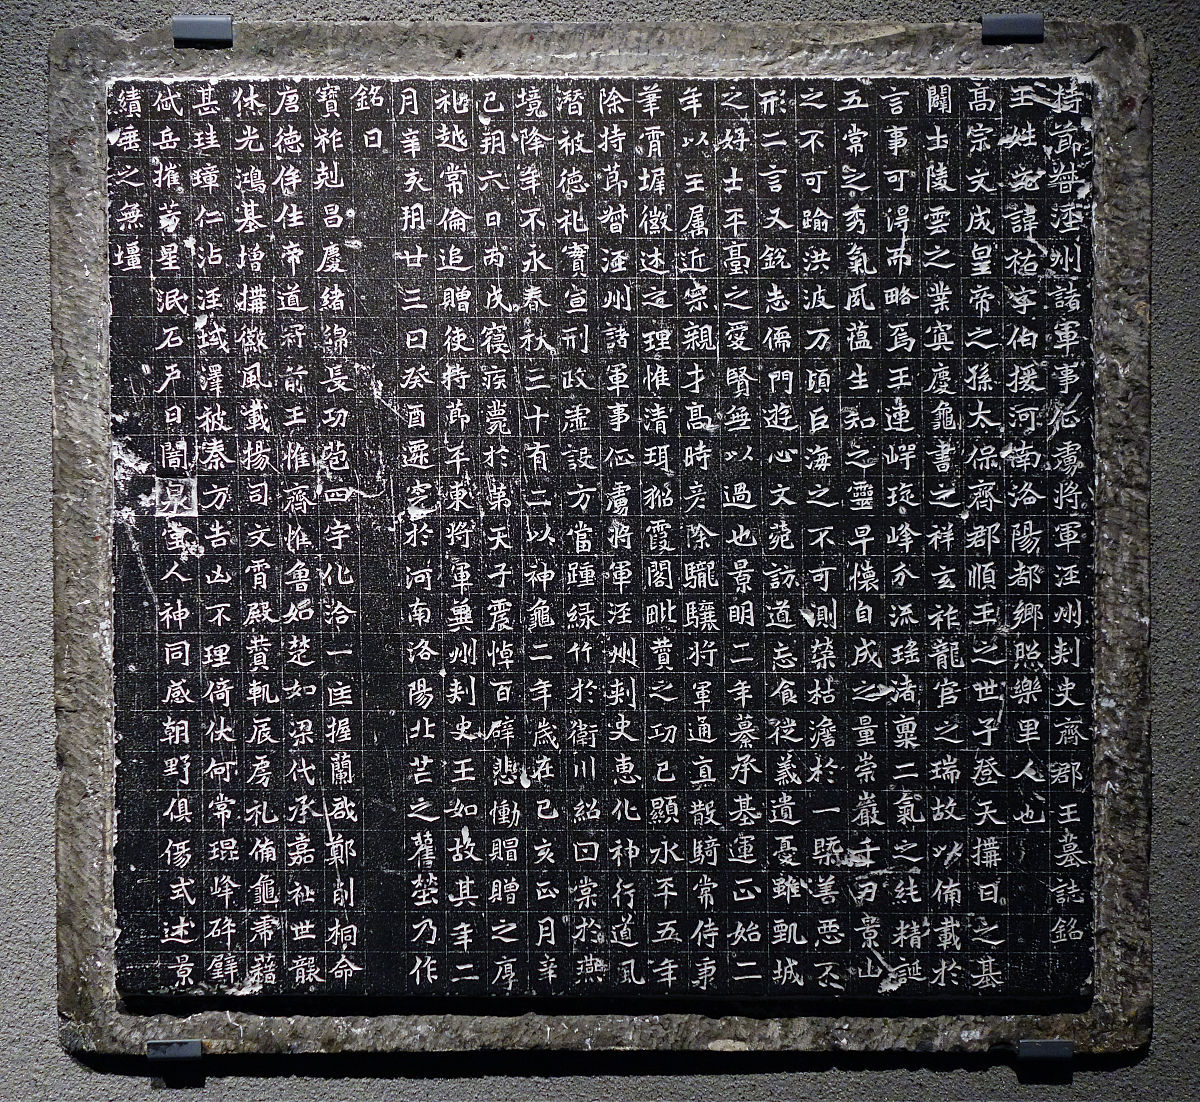 持節督涇州諸軍事征虜將軍涇州刺史齊郡王墓誌銘
王姓元諱祐字伯援河南洛陽都鄉照樂里人也
高宗文成皇帝之孫太保齊郡順王之世子登天構日之基
闢土陵雲之業寘慶龜書之祥玄祚龍官之瑞故以備載於
言事可得而略焉王連崿琁峰分流瑤渚稟二氣之純精誕
五常之秀氣夙蘊生知之靈早懷自成之量崇巖千刃景山
之不可踰洪波万頃巨海之不可測榮枯澹於一槩善惡丕
形二言又銳志儒門遊心文苑訪道忘食從義遺憂雖凱城
之好士平臺之愛賢無以過也景明二年纂承基運正始二
年以王属近宗親才高時彦除驪驤將軍通直散騎常侍秉
筆霄墀徽述之理惟清珥貂霞閣毗賛之功已顯永平五年
除持節督涇州諸軍事征虜將軍涇州刺史惠化神行道風
潛被德礼實宣刑政虛設方當踵緑竹於衛川紹曰棠於燕
境降年不永春秋三十有二以神龜二年歲在己亥正月辛
巳朔六日丙戌寢疾薨於第天子震悼百辟悲慟賵贈之厚
礼越常倫追贈使持節平東將軍兾州刺史王如故其年二
月辛亥朔廿三日癸酉遷窆於河南洛陽北芒之舊塋乃作
銘曰
寶祚剋昌慶緒綿長功苞四宇化洽一匡握蘭啟鄭削桐命
唐德侔往帝道冠前王惟齊惟魯如楚如梁代承嘉祉世襲
休光鴻基增構徽風載揚司文霄殿賛軌扆房礼備龜席藉
甚珪璋仁沾涇域澤被秦方告凶不理倚伏何常琨峰碎璧
岱岳摧芳星泯石戶日闇泉堂人神同感朝野俱傷式述景
績垂之無壃